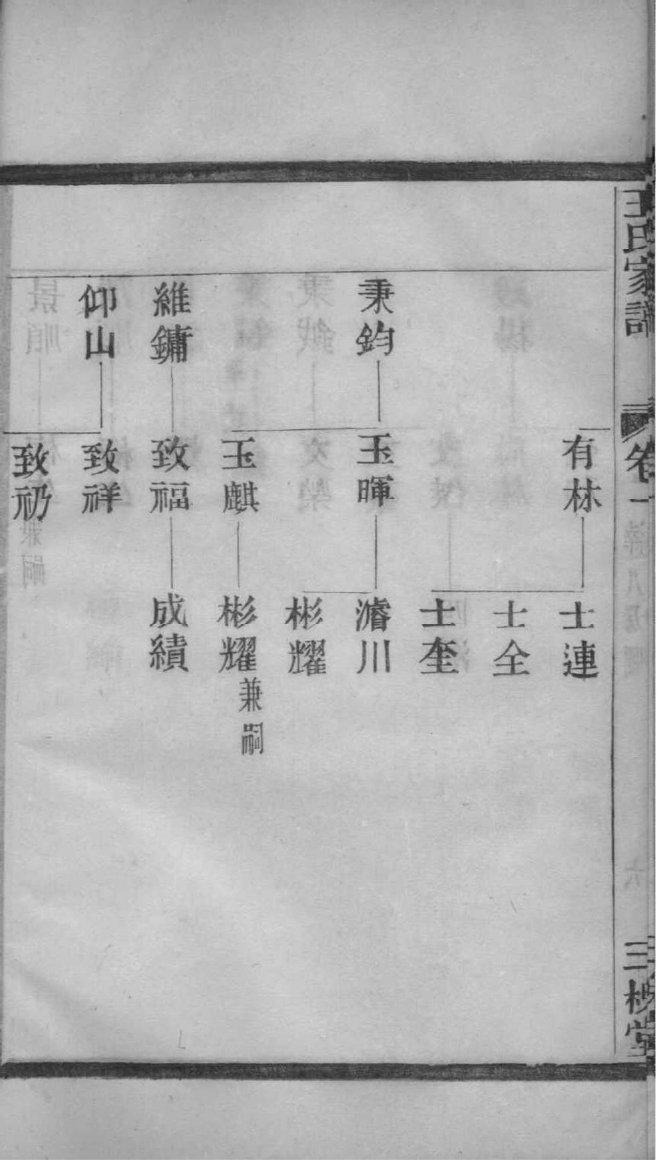 王氏家譜
卷一
三槐堂
有林
士連
士全
士奎
秉鈞
玉暉
濬川
彬耀
玉麒
彬耀兼嗣
維鏞
致福
成績
仰山
致祥
致礽